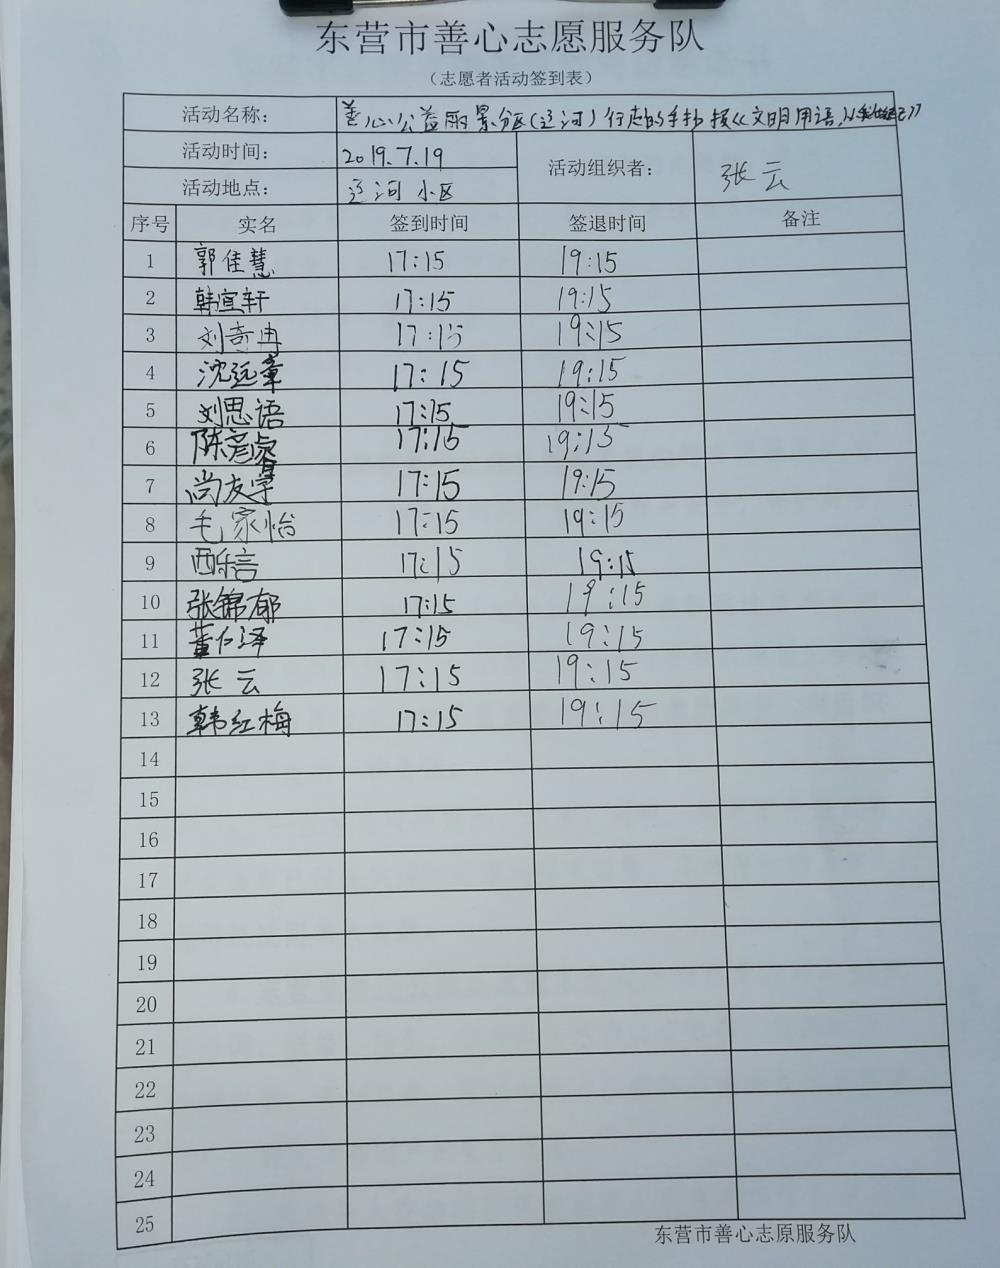 东营市善心志愿服务队
（志愿者活动签到表）
活动名称： 善心公益雨景分区(辽河)行走的手抄报《文明用语,从我做起》
活动时间： 2019.7.19 活动组织者： 张云
活动地点： 辽河小区
序号 实名 签到时间 签退时间 备注
1 郭佳慧 17:15 19:15
2 韩宜轩 17:15 19:15
3 刘奇冉 17:15 19:15
4 沈远章 17:15 19:15
5 刘思语 17:15 19:15
6 陈彦睿 17:15 19:15
7 尚友 17:15 19:15
8 毛家怡 17:15 19:15
9 西乐言 17:15 19:15
10 张锦郁 17:15 19:15
11 董仁泽 17:15 19:15
12 张云 17:15 19:15
13 韩红梅 17:15 19:15
14
15
16
17
18
19
20
21
22
23
24
25
东营市善心志原服务队